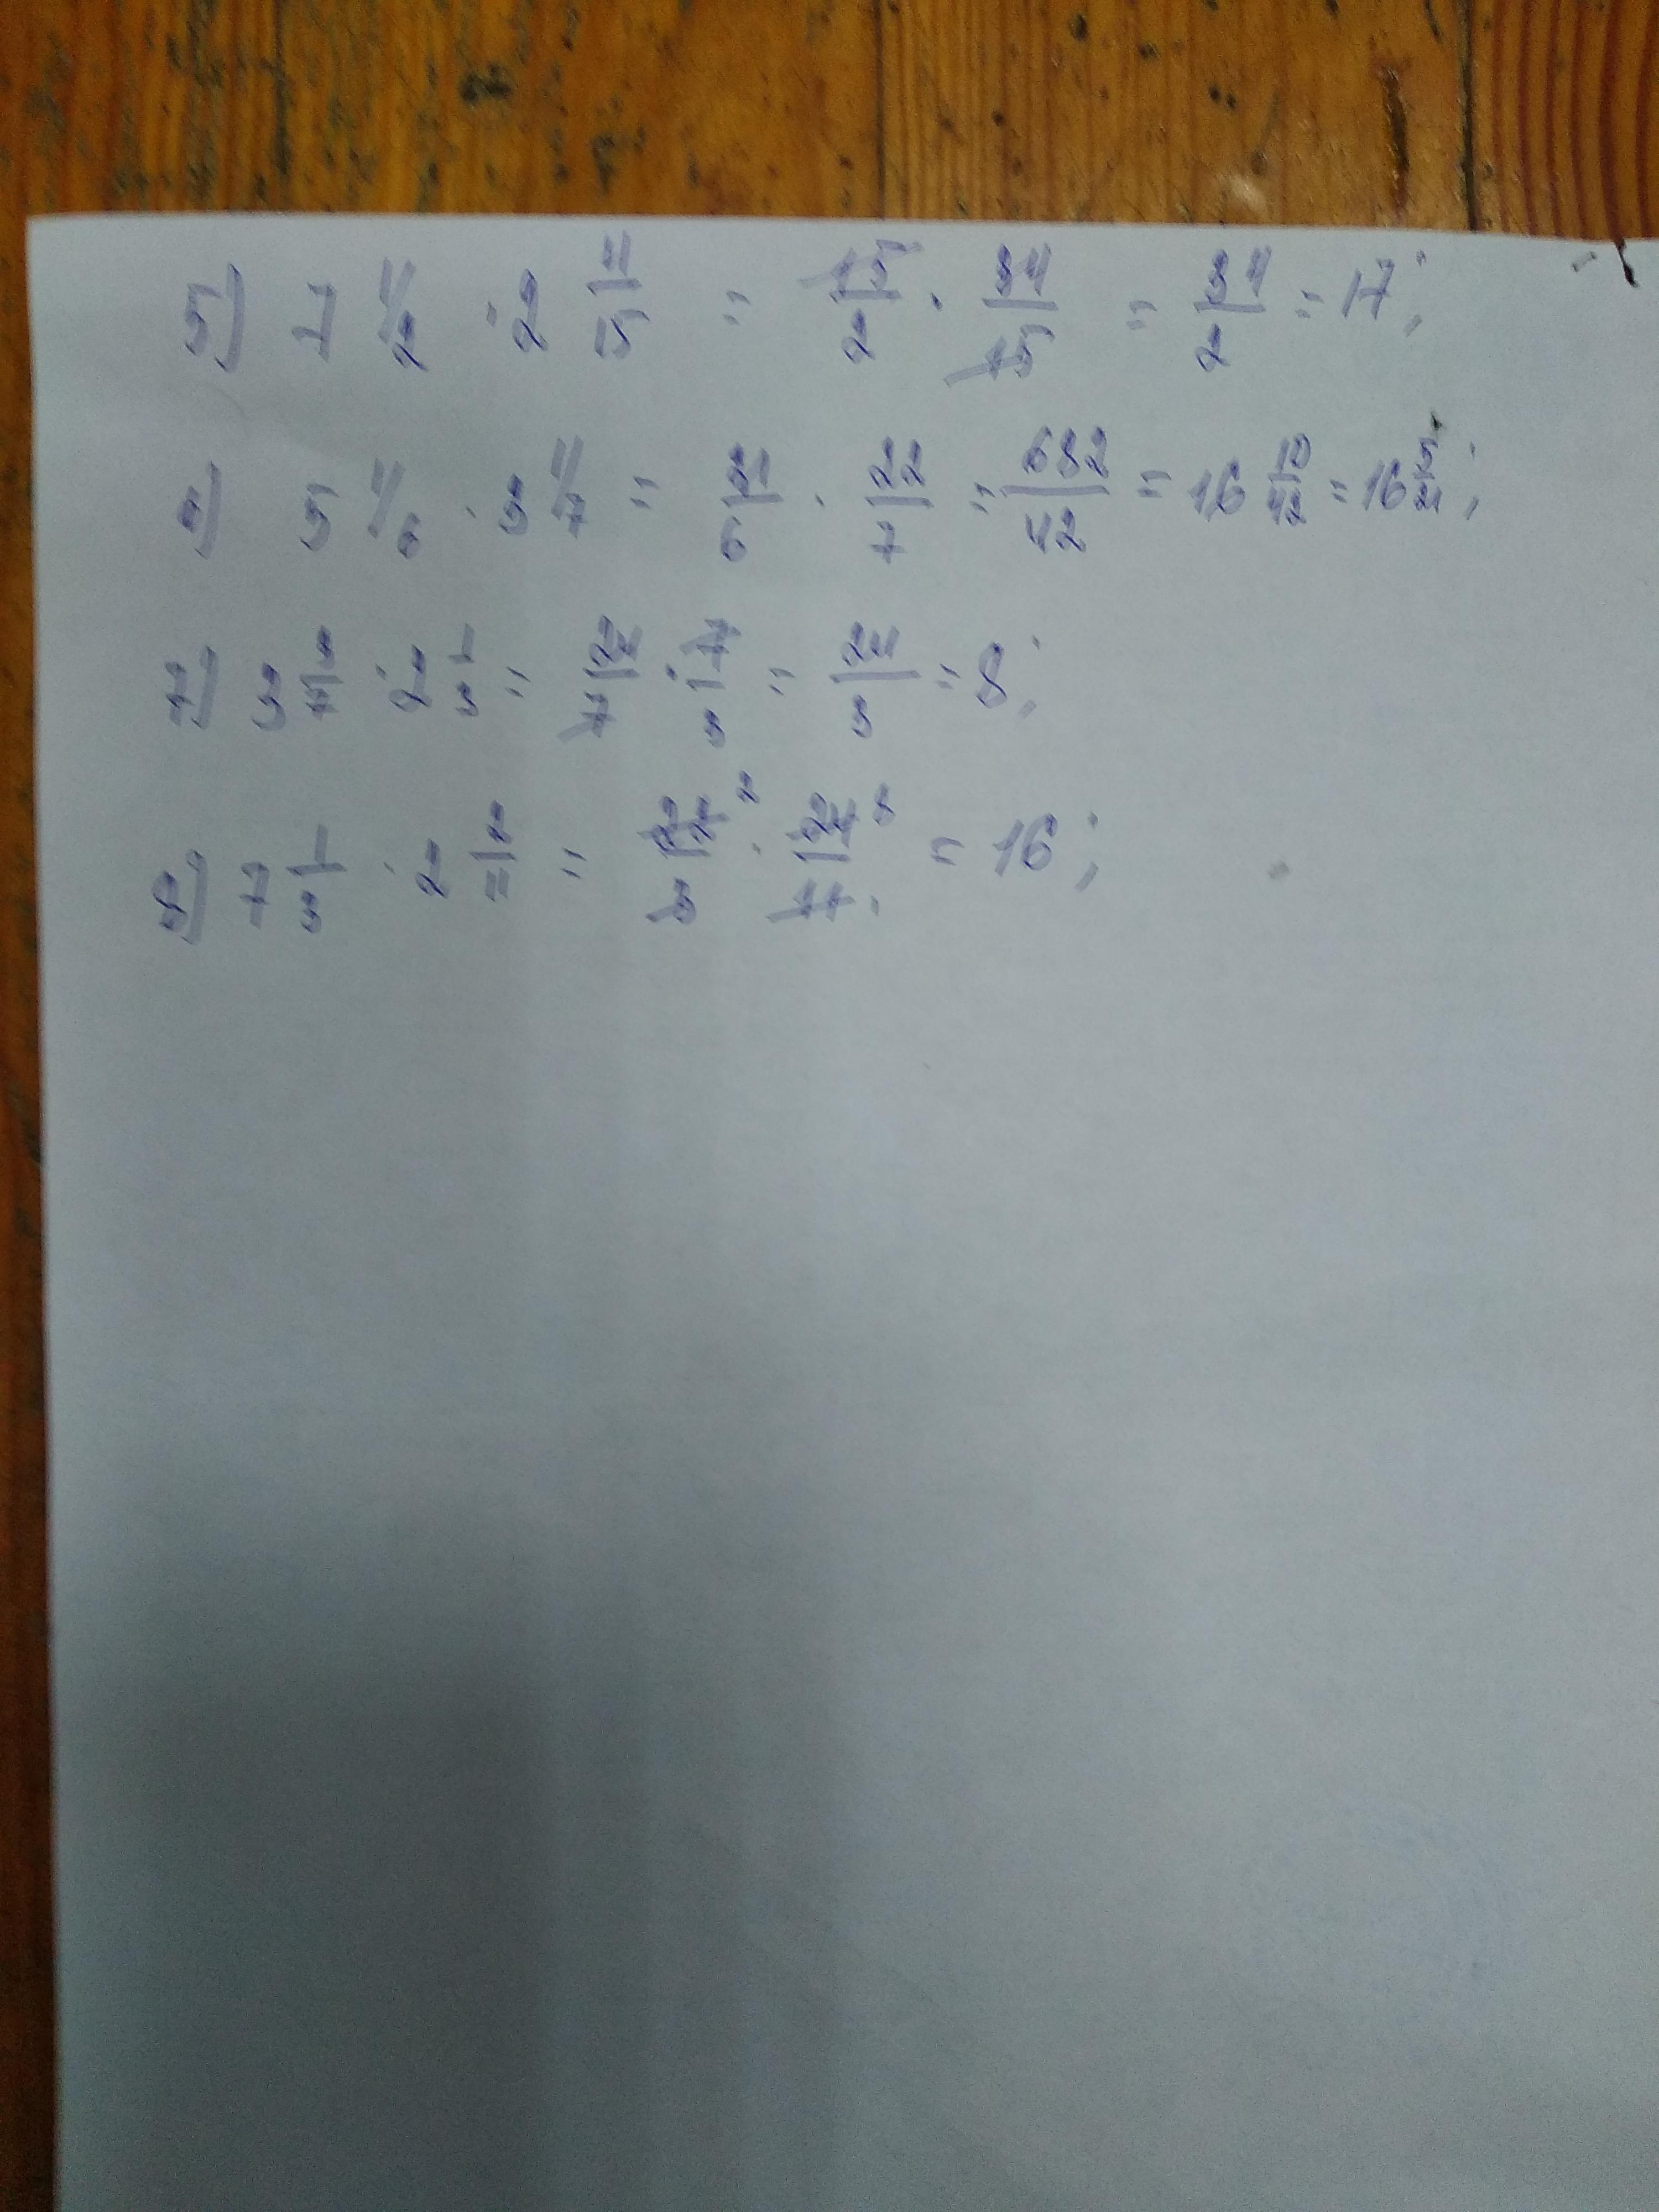 5) 7 1/2 · 2 4/15 = 15/2 · 34/15 = 34/2 = 17;
6) 5 1/6 · 3 1/7 = 31/6 · 22/7 = 682/42 = 16 10/42 = 16 5/21;
7) 3 3/7 · 2 1/3 = 24/7 · 7/3 = 24/3 = 8;
8) 7 1/3 · 2 2/11 = 22/3 2 · 24/11 8 = 16;